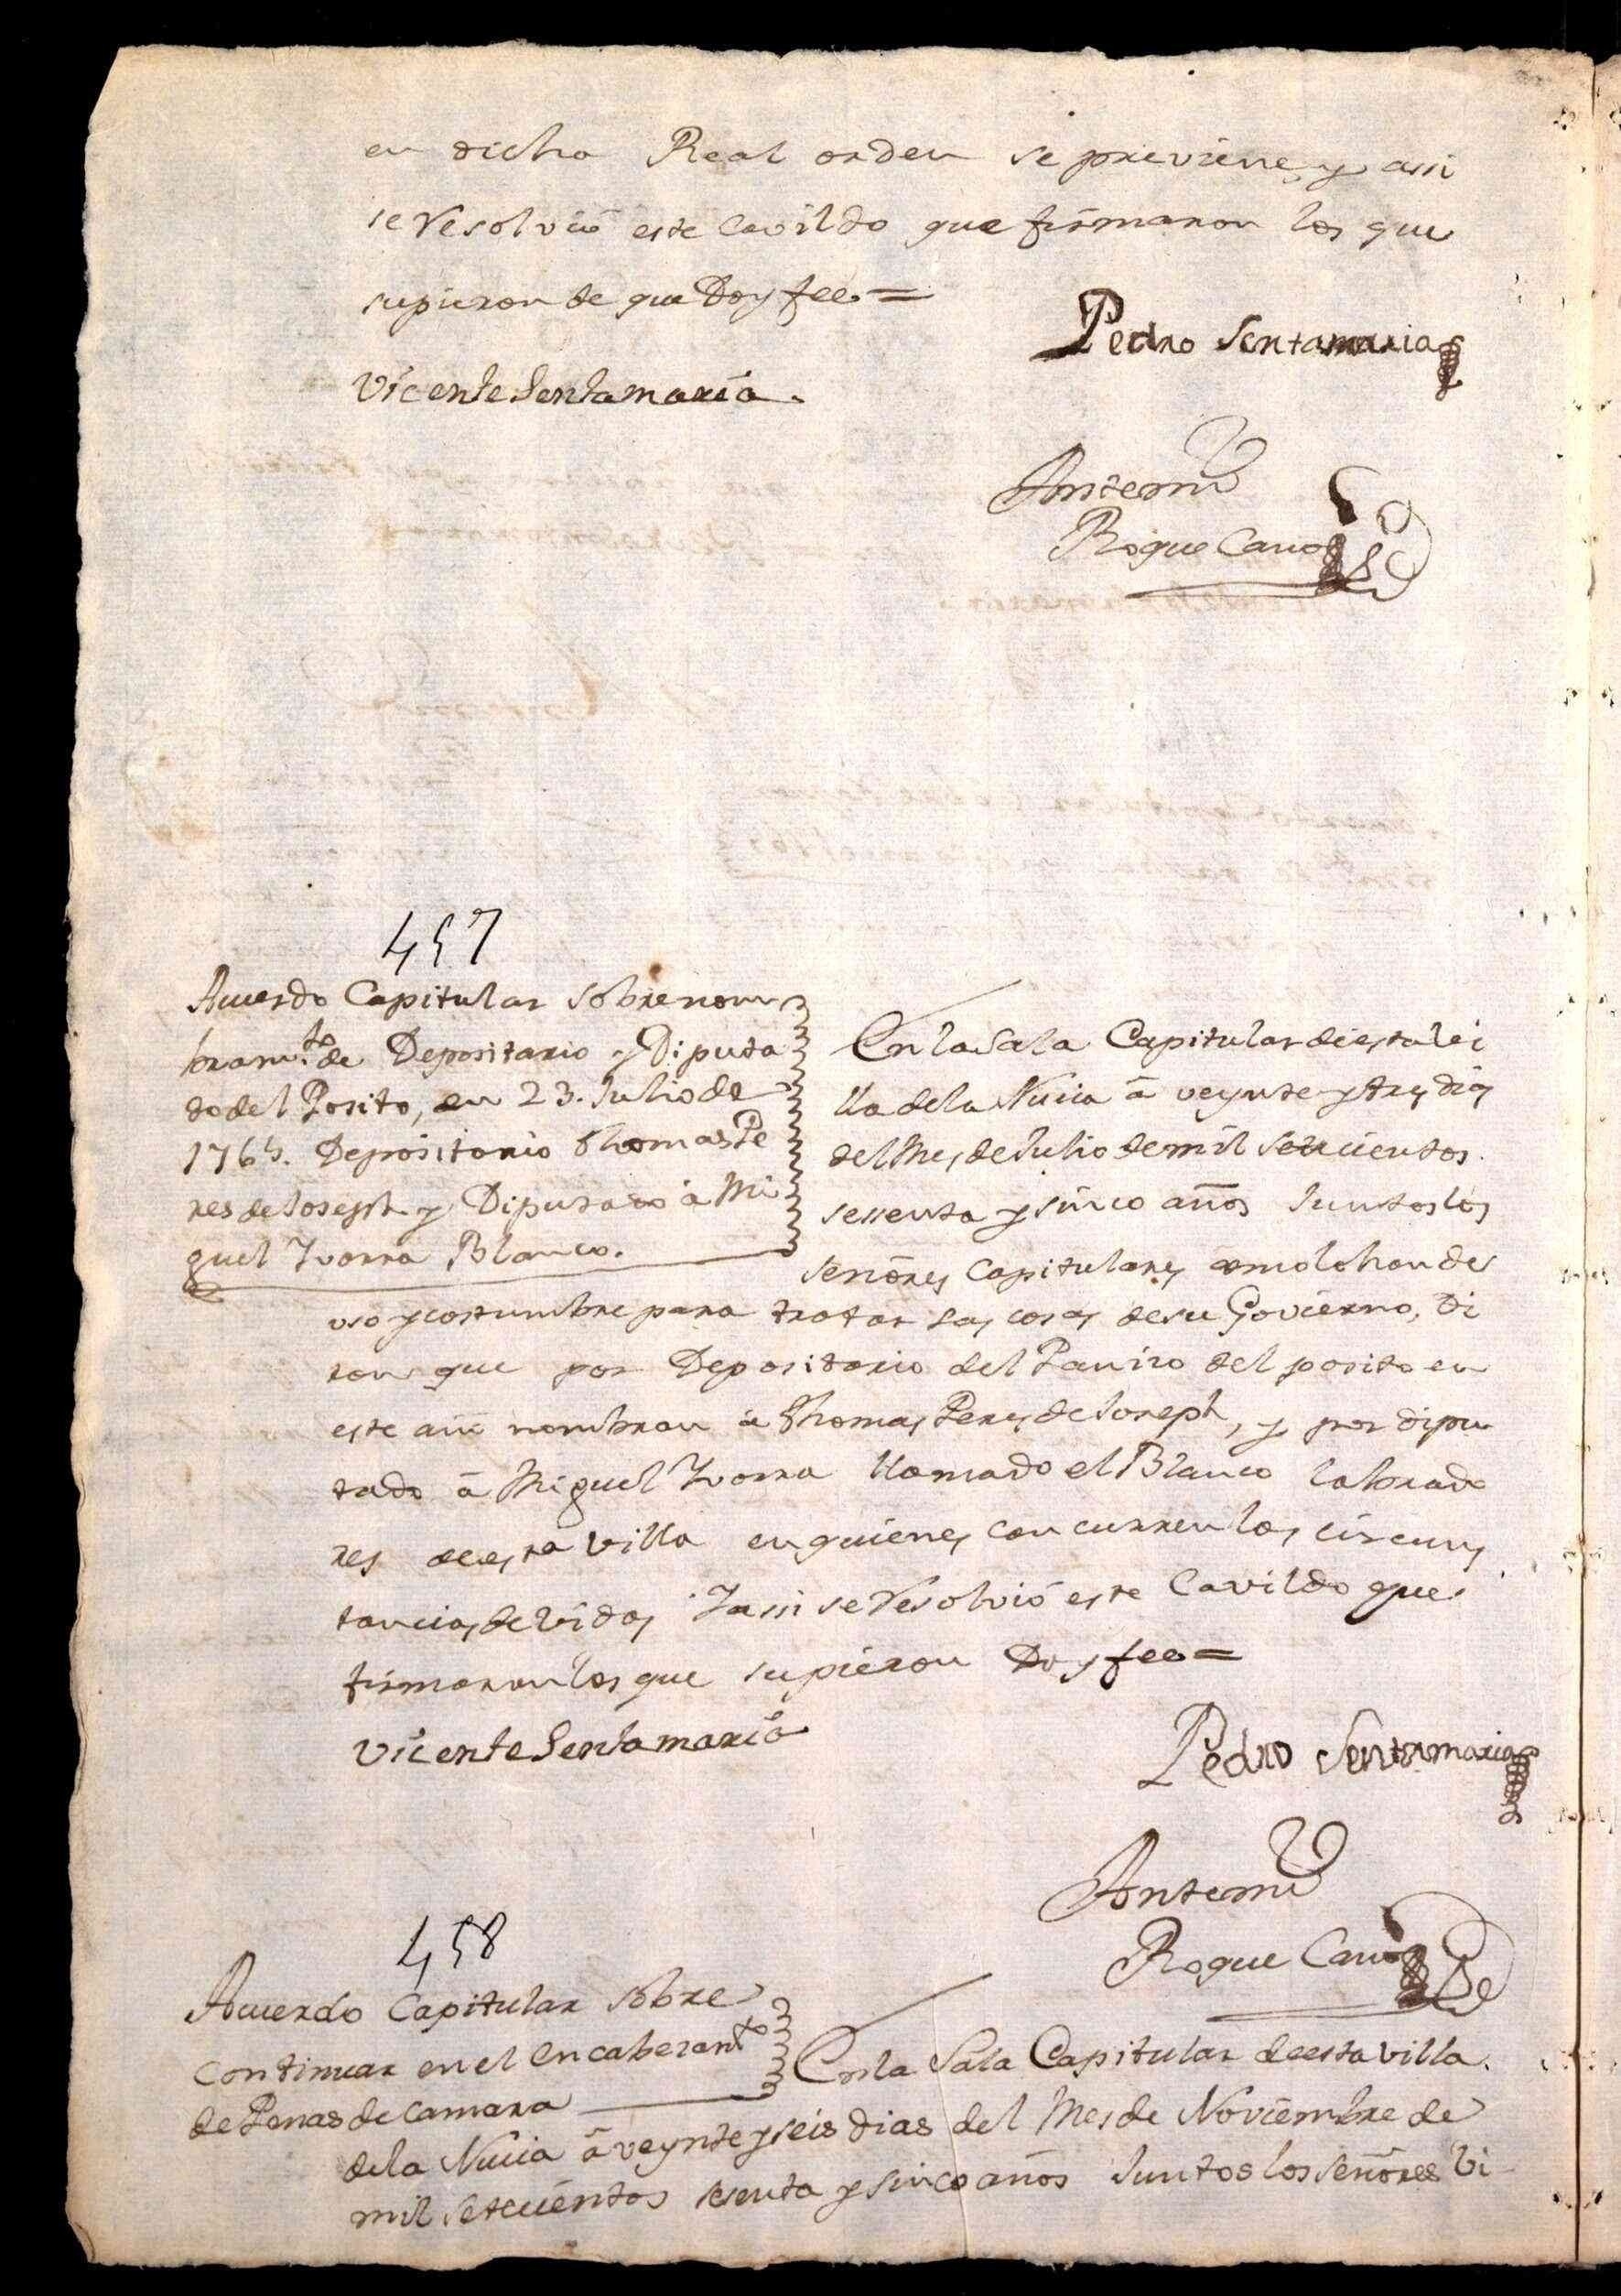 en dicha Real orden se previene, y assi
se Resolvió este Cavildo que firmaron los que
supieron de que Doy fee =
Pedro Sentamaria
Vicente Sentamaria.
Antemi
Roque Cano
457
Acuerdo Capitular sobre nom
bram.to de Depositario y Diputa
do del Posito, en 23. Julio de
1765. Depositario Thomas Pe
res de Joseph y Diputado à Mi
guel Yvorra Blanco.
En la Sala Capitular de esta Vi
lla de la Nucia â veynte y tres dias
del Mes de Julio de mil setecientos
sessenta y sinco años Juntos los
señores Capitulares como lo han de
uso y costumbre para tratar las cosas de su Govierno, Di
xon que por Depositario del Panizo del posito en
este año nombran à Thomas Peres de Joseph, y por dipu
tado â Miguel Yvorra llamado el Blanco labrado
res de esta Villa en quienes concurren las circuns
tancias devidas, Y assi se Resolvió este Cavildo que
firmaron los que supieron Doy fee =
Vicente Sentamaria
Pedro Sentamaria
Antemi
Roque Cano
458
Acuerdo Capitular sobre
continuar en el encabezam.to
de Penas de Camara
En la Sala Capitular de esta Villa
de la Nucia â veynte y seis dias del Mes de Noviembre de
mil setecientos sesenta y sinco años Juntos los señores Vi